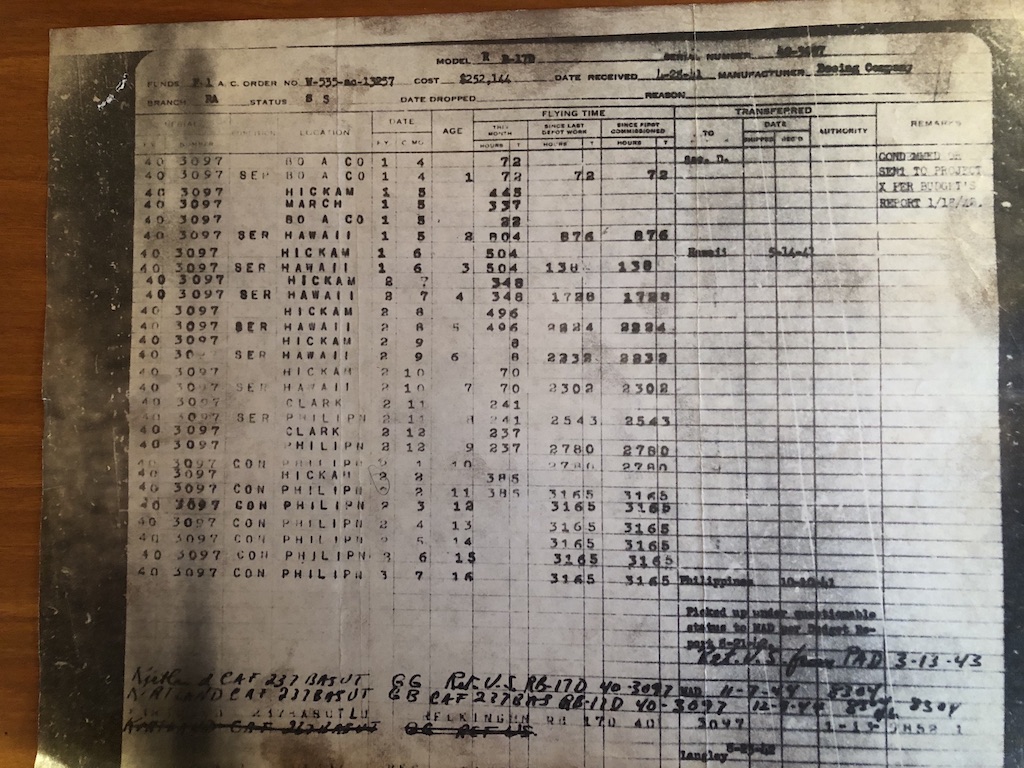 MODEL R B-17D SERIAL NUMBER 40-3097
FUNDS P.1 A.C. ORDER NO W-535-ac-13257 COST $252,144 DATE RECEIVED 4-25-41 MANUFACTURER Boeing Company
BRANCH RA STATUS S S DATE DROPPED REASON
FLYING TIME TRANSFERRED
DATE THIS MONTH SINCE LAST DEPOT WORK SINCE FIRST COMMISSIONED DATE REMARKS
LOCATION AGE TO AUTHORITY
HOURS HOURS T HOURS T SHIPPED REC'D
40 3097 BO A CO 1 4 72 Sac. D. CONDEMNED OR
40 3097 SER BO A CO 1 4 1 72 72 72 SENT TO PROJECT
40 3097 HICKAM 1 5 445 X PER BUDGET'S
40 3097 MARCH 1 5 337 REPORT 1/12/42.
40 3097 BO A CO 1 5 22
40 3097 SER HAWAII 1 5 2 804 876 876
40 3097 HICKAM 1 6 504 Hawaii 5-14-41
40 3097 SER HAWAII 1 6 3 504 138 138
40 3097 HICKAM 2 7 348
40 3097 SER HAWAII 2 7 4 348 1728 1728
40 3097 HICKAM 2 8 496
40 3097 SER HAWAII 2 8 5 496 2224 2224
40 3097 HICKAM 2 9 8
40 30 SER HAWAII 2 9 6 8 2232 2232
40 3097 HICKAM 2 10 70
40 3097 SER HAWAII 2 10 7 70 2302 2302
40 3097 CLARK 2 11 241
40 3097 SER PHILIPN 2 11 8 241 2543 2543
40 3097 CLARK 2 12 237
40 3097 PHILIPN 2 12 9 237 2780 2780
40 3097 CON PHILIPN 2 1 10 2780 2780
40 3097 HICKAM 2 2 385
40 3097 CON PHILIPN 2 2 11 385 3165 3165
40 3097 CON PHILIPN 2 3 12 3165 3165
40 3097 CON PHILIPN 2 4 13 3165 3165
40 3097 CON PHILIPN 2 5 14 3165 3165
40 3097 CON PHILIPN 3 6 15 3165 3165
40 3097 CON PHILIPN 3 7 16 3165 3165 Philippines 10-20-41
Picked up under questionable
status to MAD per Budget Re-
port
Ret. U.S from PAD 3-13-43
Kirtland CAF 237 BASUT GG Ret. U.S RB-17D 40-3097 MAD 11-7-44 8304
KIRTLAND CAF 237BASUT GB CAF 237BAS RB-17D 40-3097 12-9-44 8304
RB 17D 40 3097 1-13
KIRTLAND CAF 237BASUT
Langley